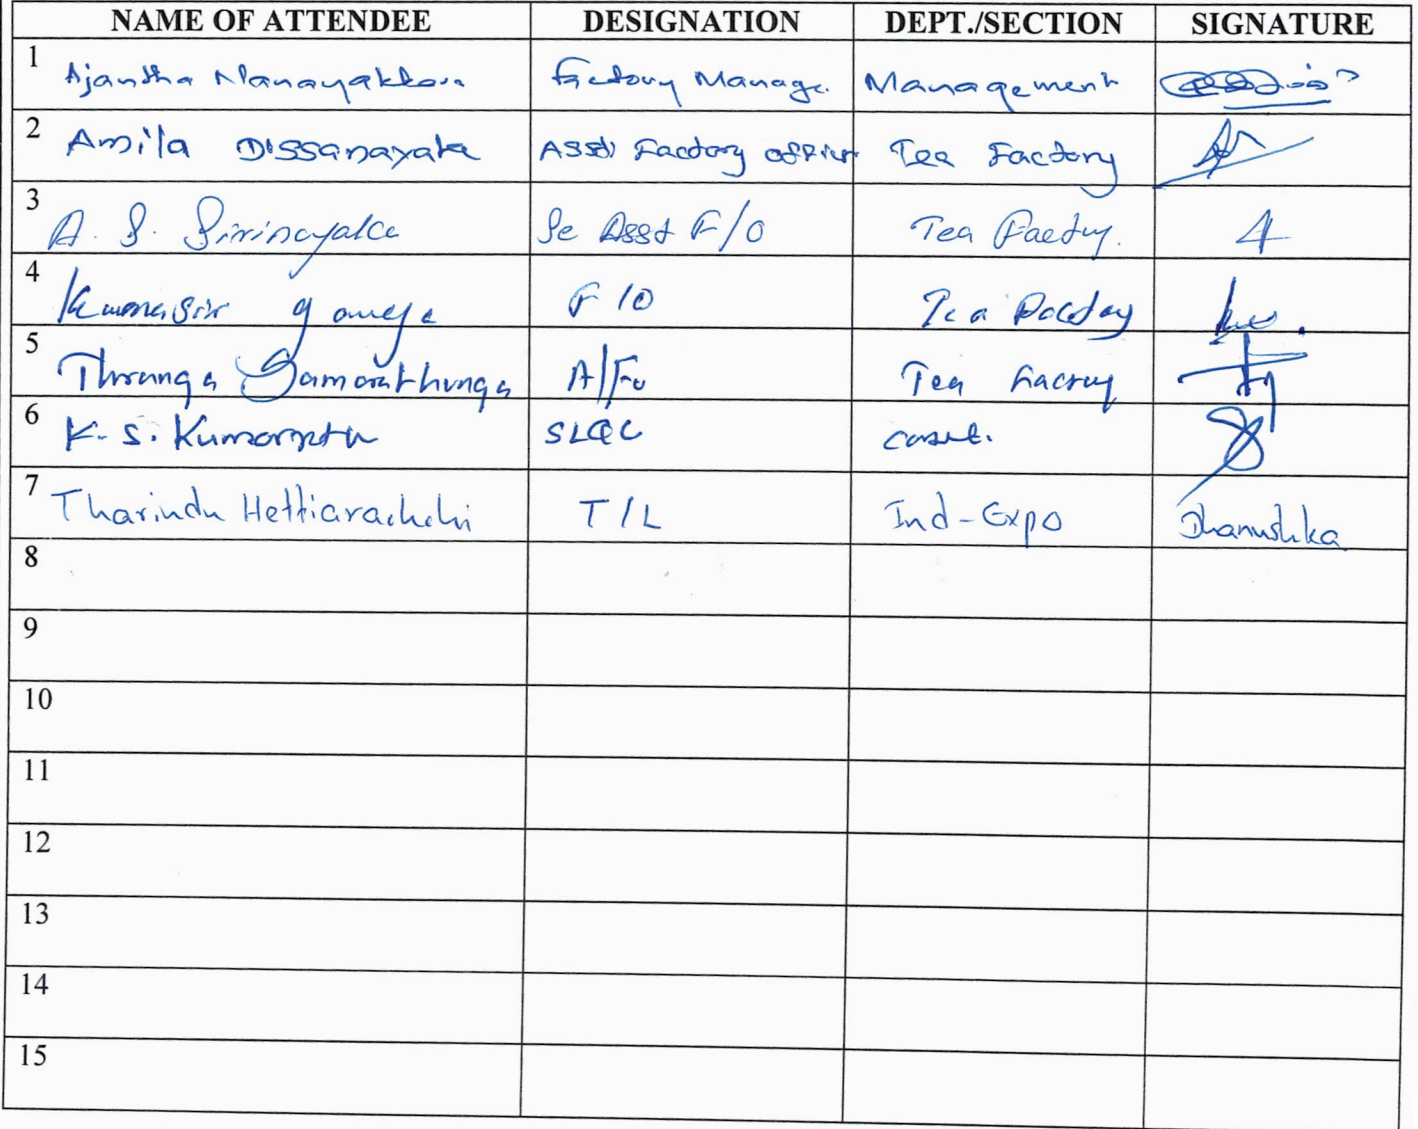 NAME OF ATTENDEE DESIGNATION DEPT./SECTION SIGNATURE
1 Ajantha Nanayakkara Factory Manage. Management
2 Amila Dissanayake Asst: Factory officer Tea Factory
3 A. S. Sirinayake Se Asst F/O Tea Factory.
4 Kumarasiri gamage F/O Tea Factory
5 Tharanga Samarathunga A/Fo Tea Factory
6 K. S. SLQC
7 Tharindu Hettiarachchi T/L Ind-Expo Dhanushka
8
9
10
11
12
13
14
15